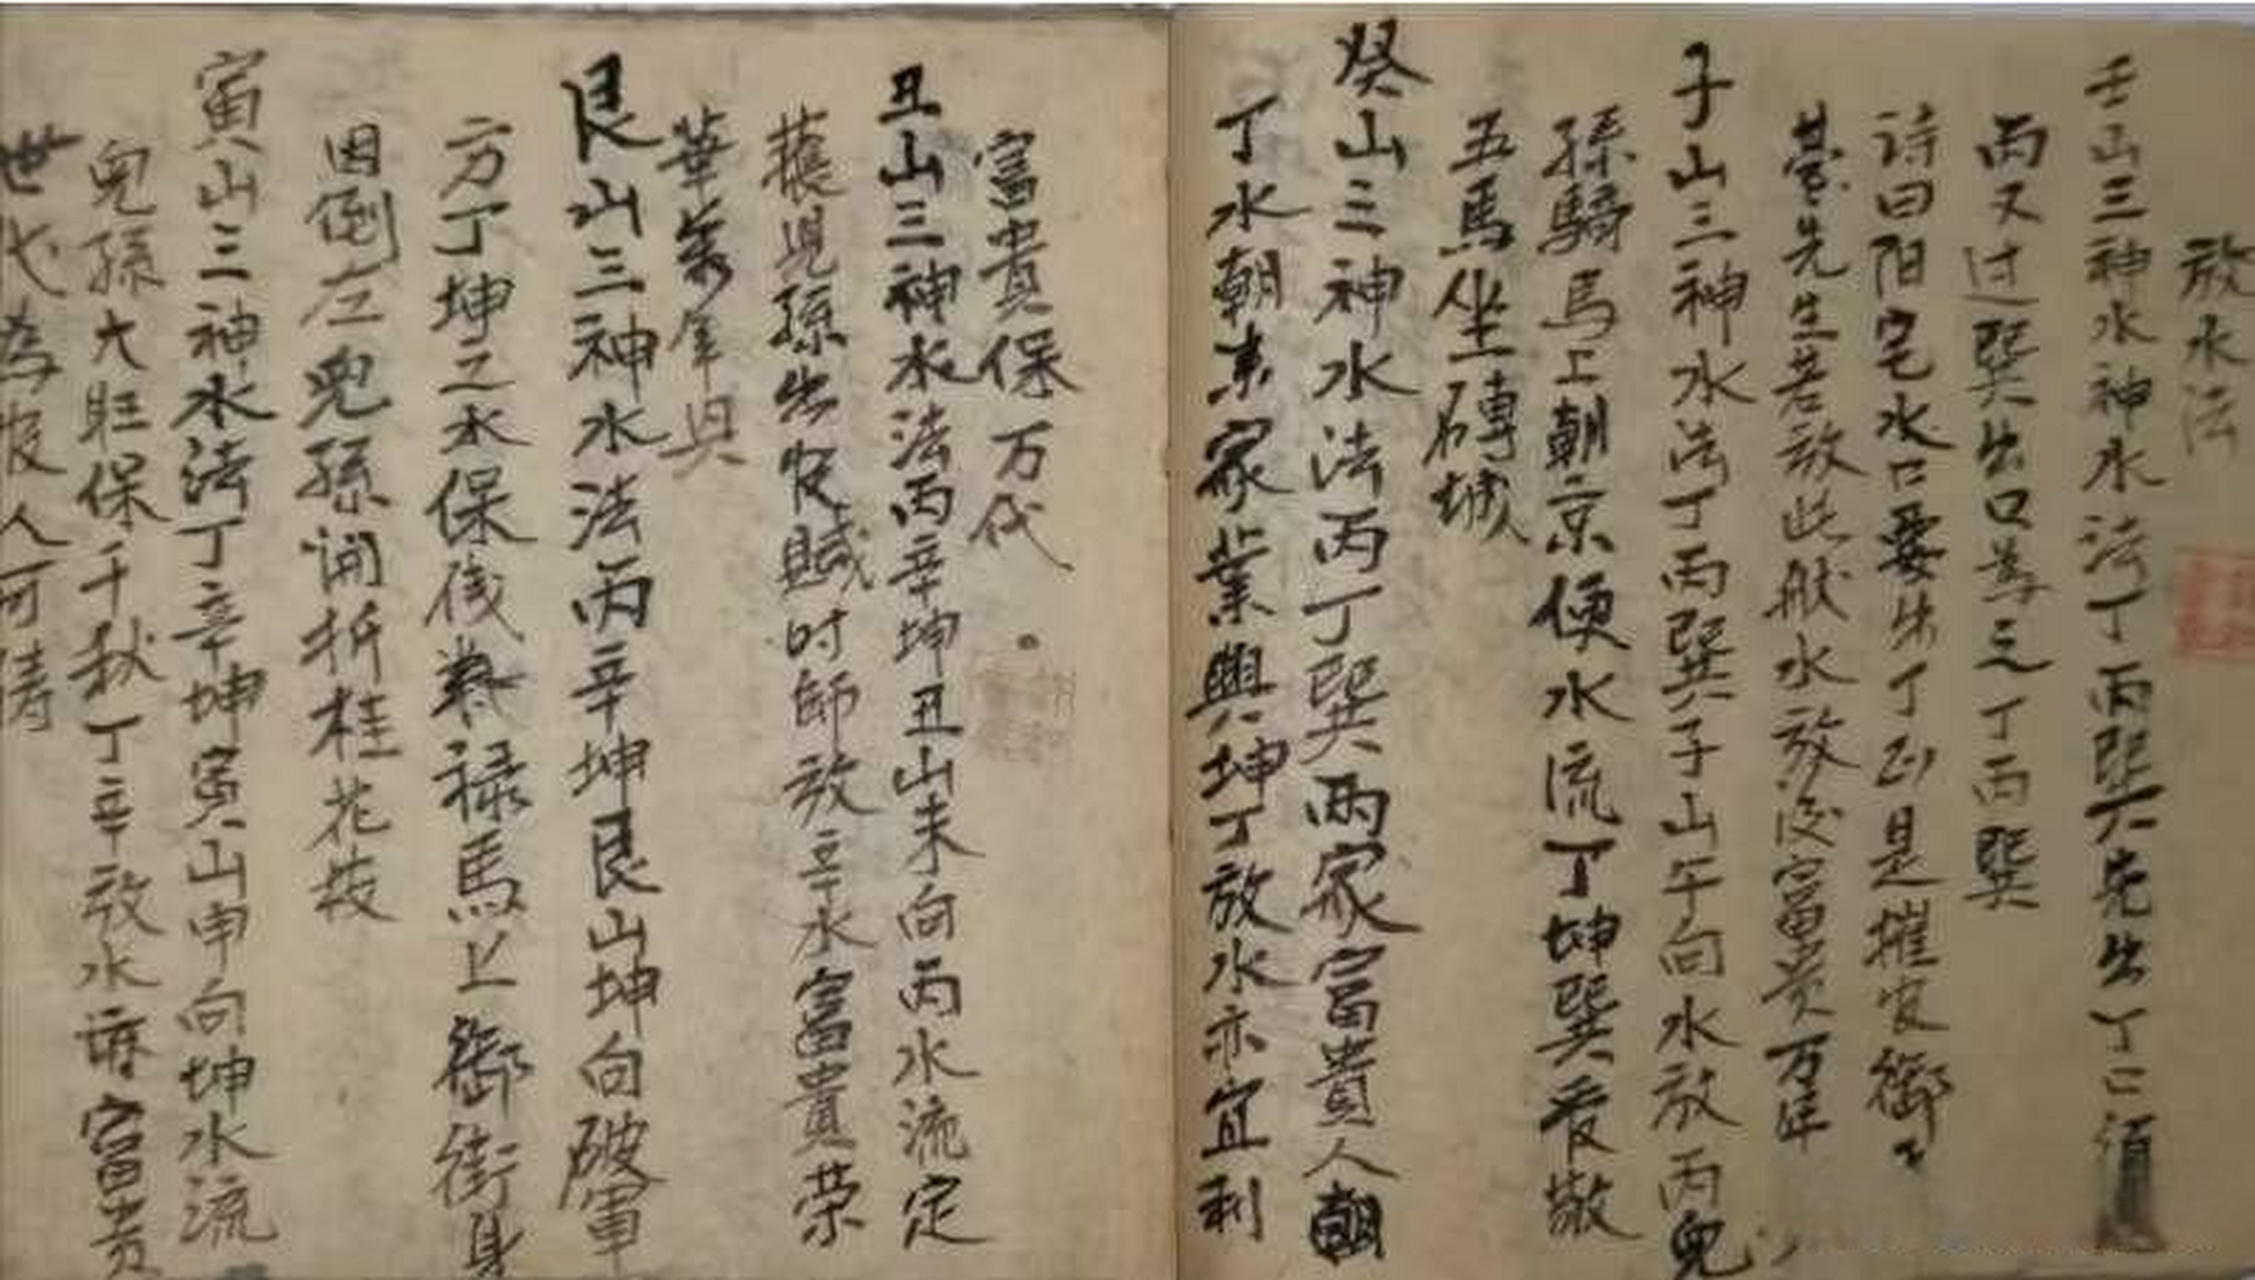 放水法
壬山三神水神水法丁丙巽先出丁已須
丙又过巽出口為之丁丙巽
诗曰阳宅水口要出丁正是摧官
先生若放此般水放后富贵万年
子山三神水法丁丙巽子山午向水放丙兒
孫騎馬上朝京便水流丁坤巽
五馬坐磚城
癸山三神水法丙丁巽兩家富貴人朝
丁水朝来家業興坤丁放水亦宜利
富貴保万代
丑山三神水法丙辛坤丑山未向丙水流定
兒孫出时師放辛水富貴荣
華萬年興
艮山三神水法丙辛坤艮山坤向破軍
方丁坤之水保禄馬上街身
因倒左兒孫折桂花枝
寅山三神水法丁辛坤寅山申向坤水流
兒孫大旺保千秋丁辛放水富贵
世代為人可